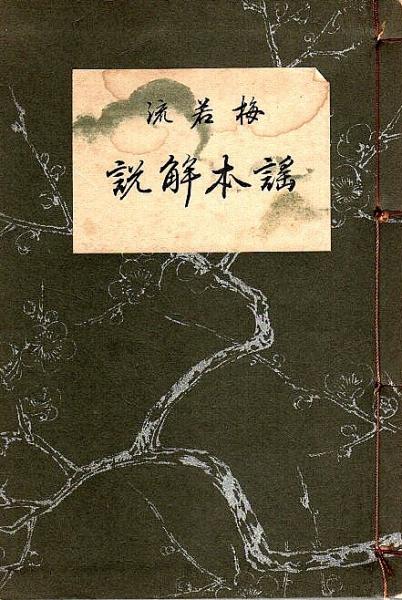 梅若流
謡本解説